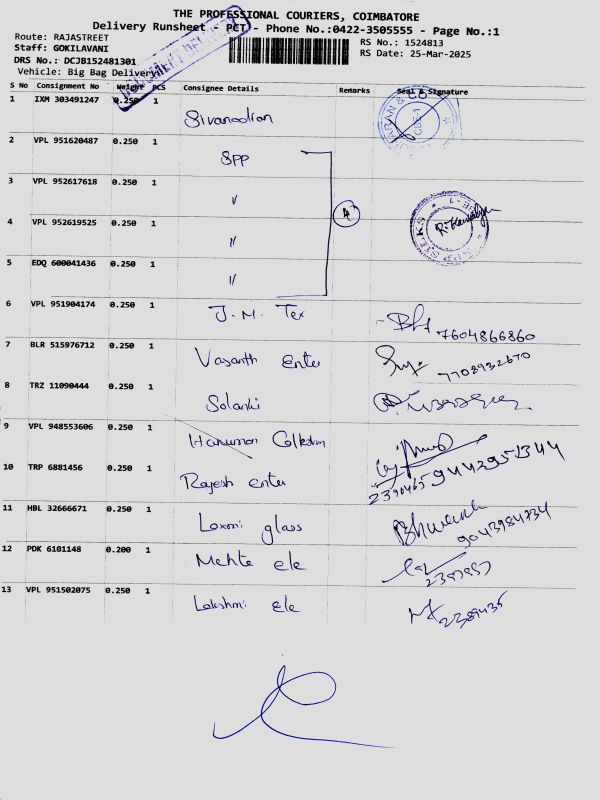 THE PROFESSIONAL COURIERS, COIMBATORE
Delivery Runsheet - PCT - Phone No.:0422-3505555 - Page No.:1
Route: RAJASTREET
Staff: GOKILAVANI
DRS No.: DCJB152481301
Vehicle: Big Bag Delivery
RS No.: 1524813
RS Date: 25-Mar-2025
S No Consignment No Weight PCS Consignee Details Remarks Seal & Signature
1 IXM 303491247 0.250 1
2 VPL 951620487 0.250 1 SPP
3 VPL 952617618 0.250 1 "
4 VPL 952619525 0.250 1 "
5 EDQ 600041436 0.250 1 "
6 VPL 951904174 0.250 1 J. M. Tex 7604866860
7 BLR 515976712 0.250 1 Vasanth Enter 7708932670
8 TRZ 11090444 0.250 1 Solanki
9 VPL 948553606 0.250 1 Hanuman Collection
10 TRP 6881456 0.250 1 Rajesh enter 2390465 9442951344
11 HBL 32666671 0.250 1 Laxmi glass 9043984734
12 PDK 6101148 0.200 1 Mehta ele
13 VPL 951502075 0.250 1 Lakshmi ele 2389435